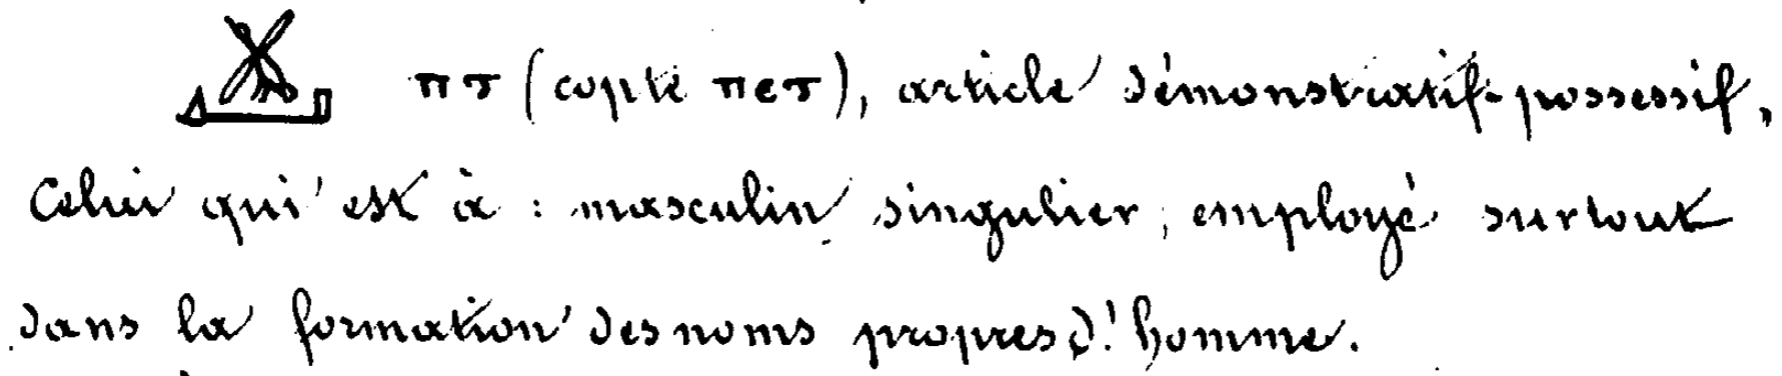 πτ (copte πετ), article démonstratif-possessif,
Celui qui est à : masculin singulier, employé surtout
dans la formation des noms propres d'homme.